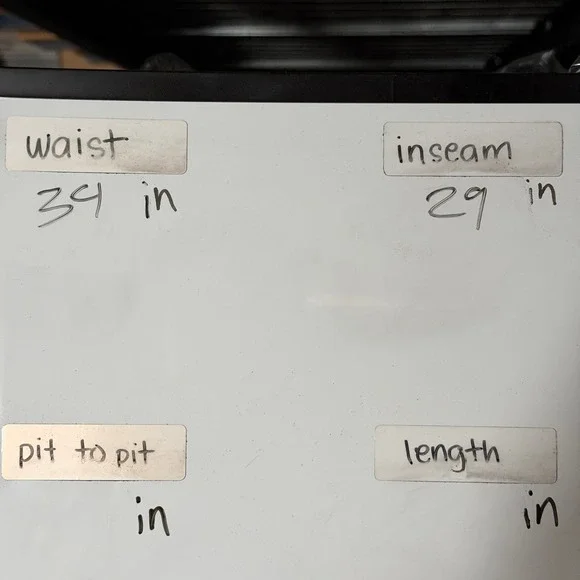 waist
34 in
inseam
29 in
pit to pit
in
length
in